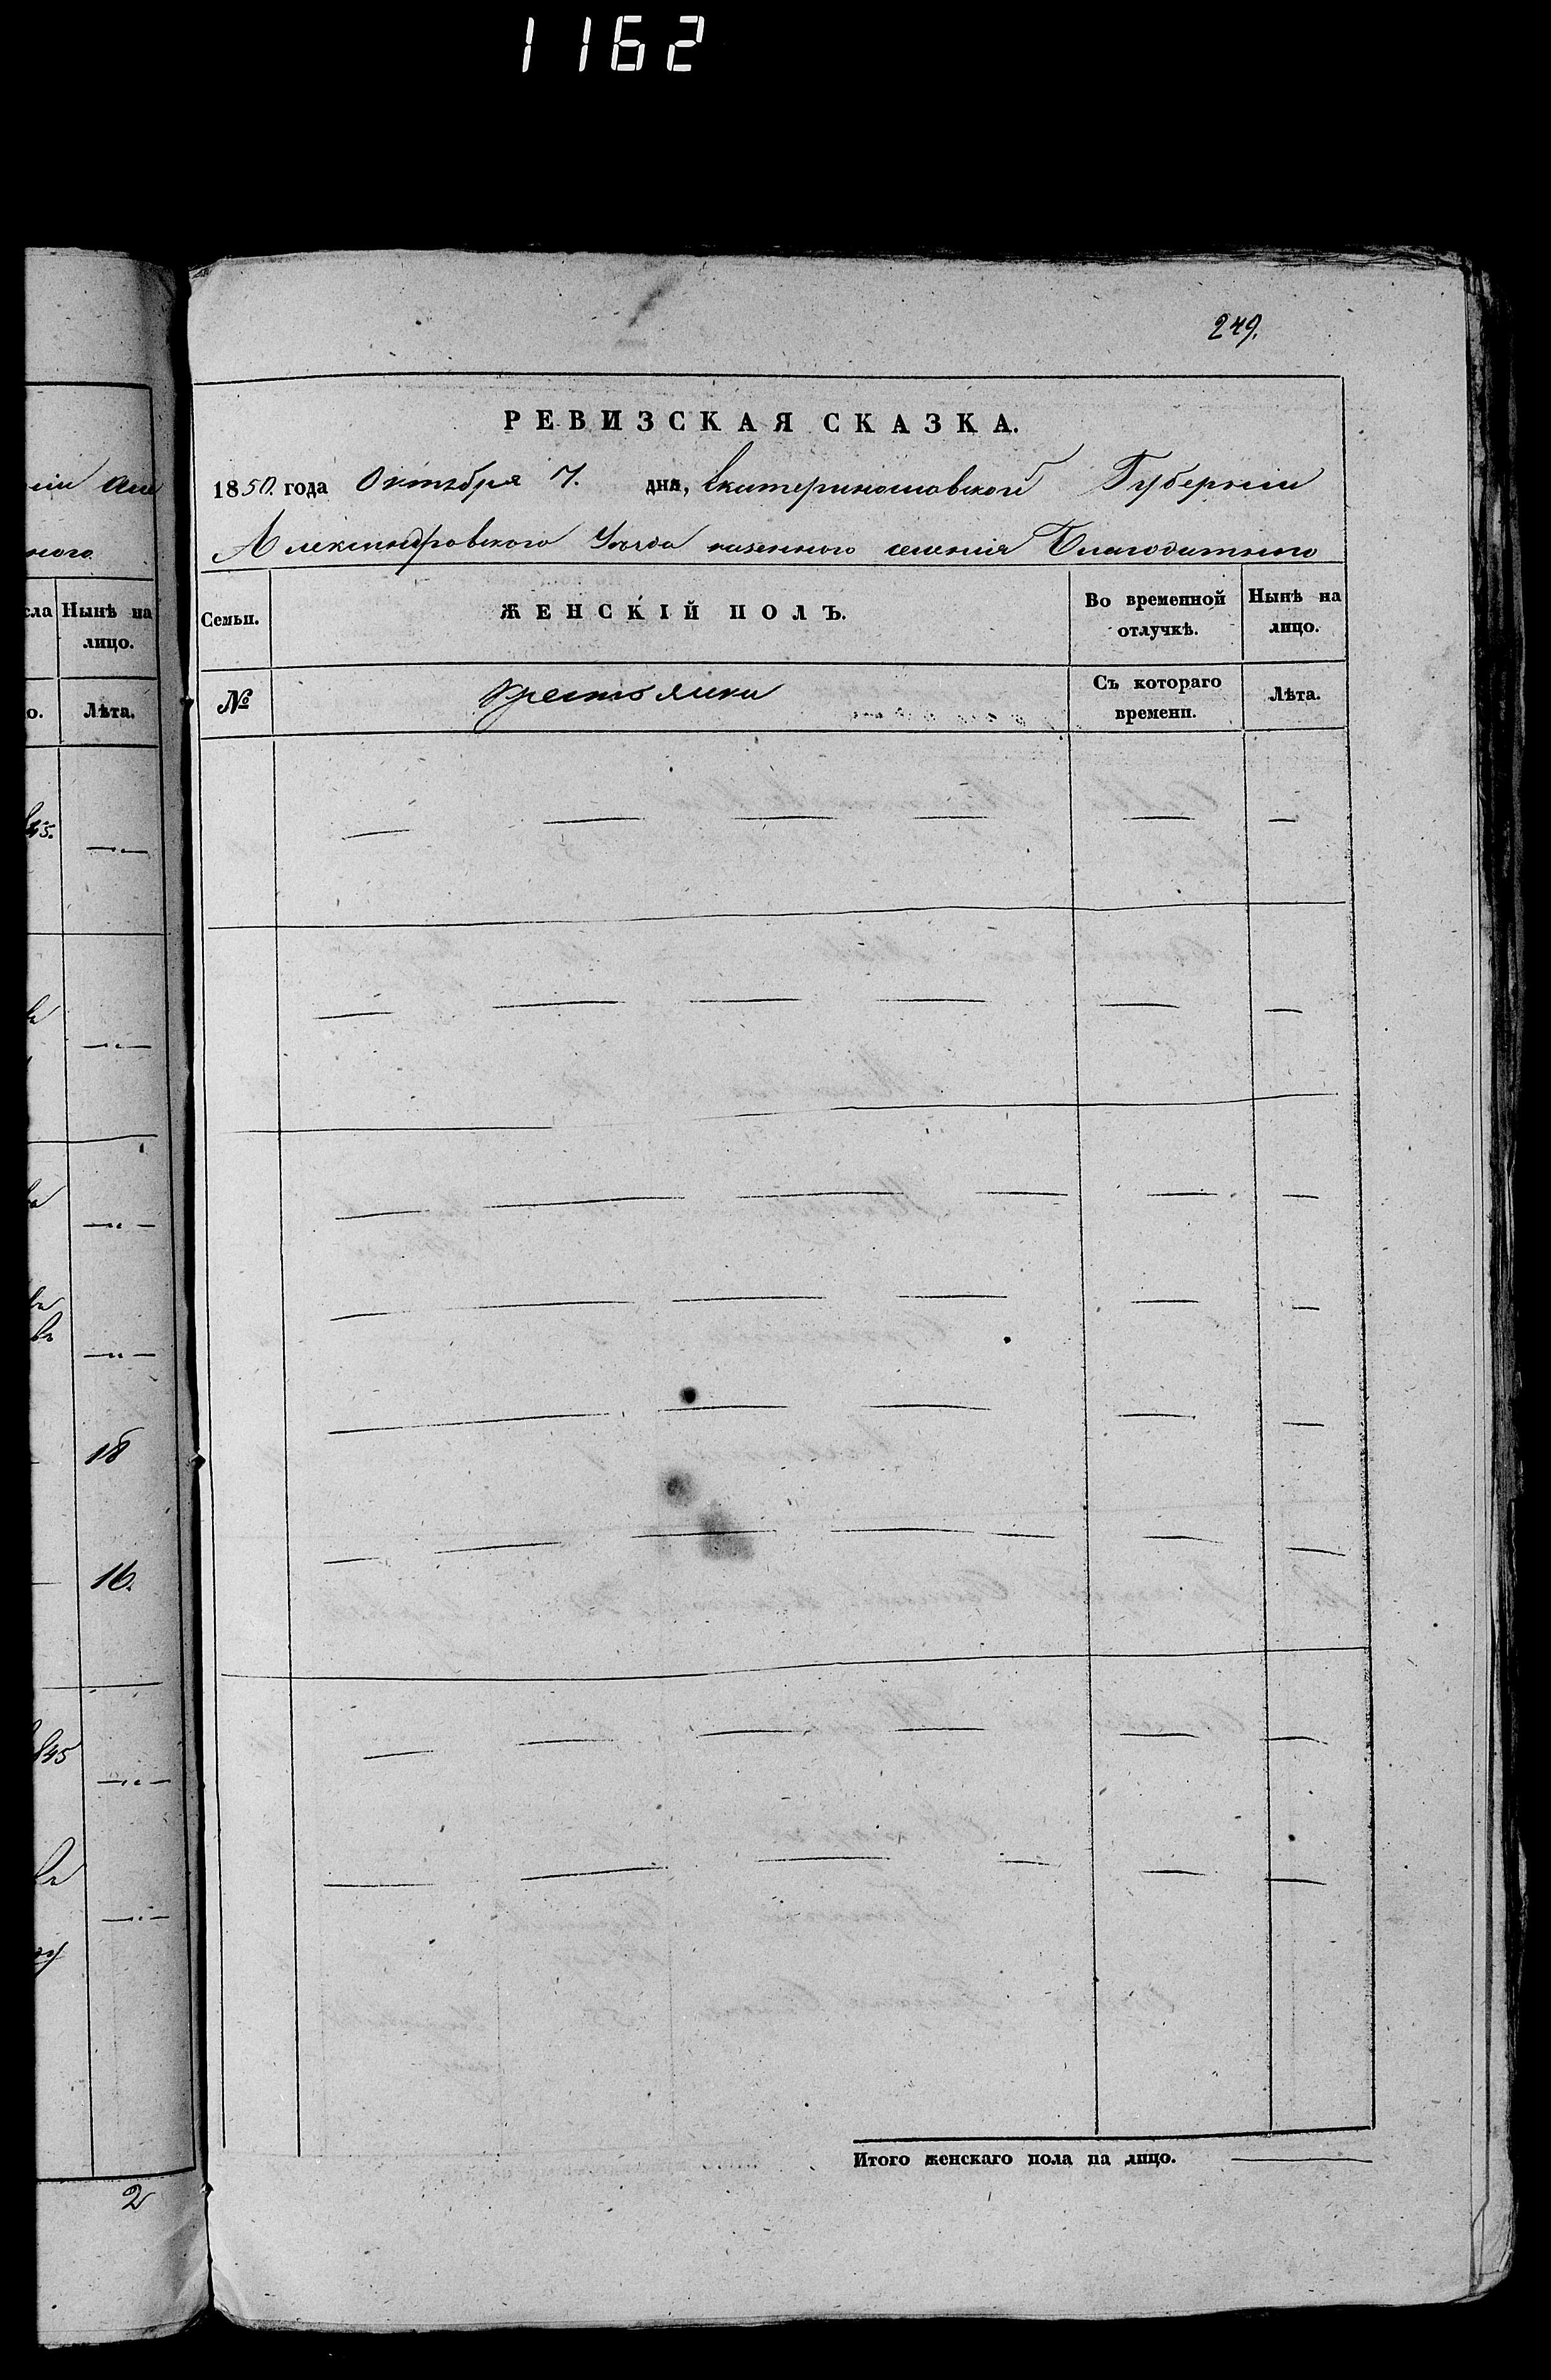 1162
249.
РЕВИЗСКАЯ СКАЗКА.
1850. года Октября 7. дня, Екатеринославской Губерніи
Александровского Уѣзда казенного селенія Благодатного
ного
сла Нынѣ на лицо.
о. Лѣта.
Семьи. ЖЕНСКІЙ ПОЛЪ. Во временной отлучкѣ. Нынѣ на лицо.
№ Крестьянки Съ котораго времени. Лѣта.
45.
18
16.
845
2
Итого женскаго пола на лицо.